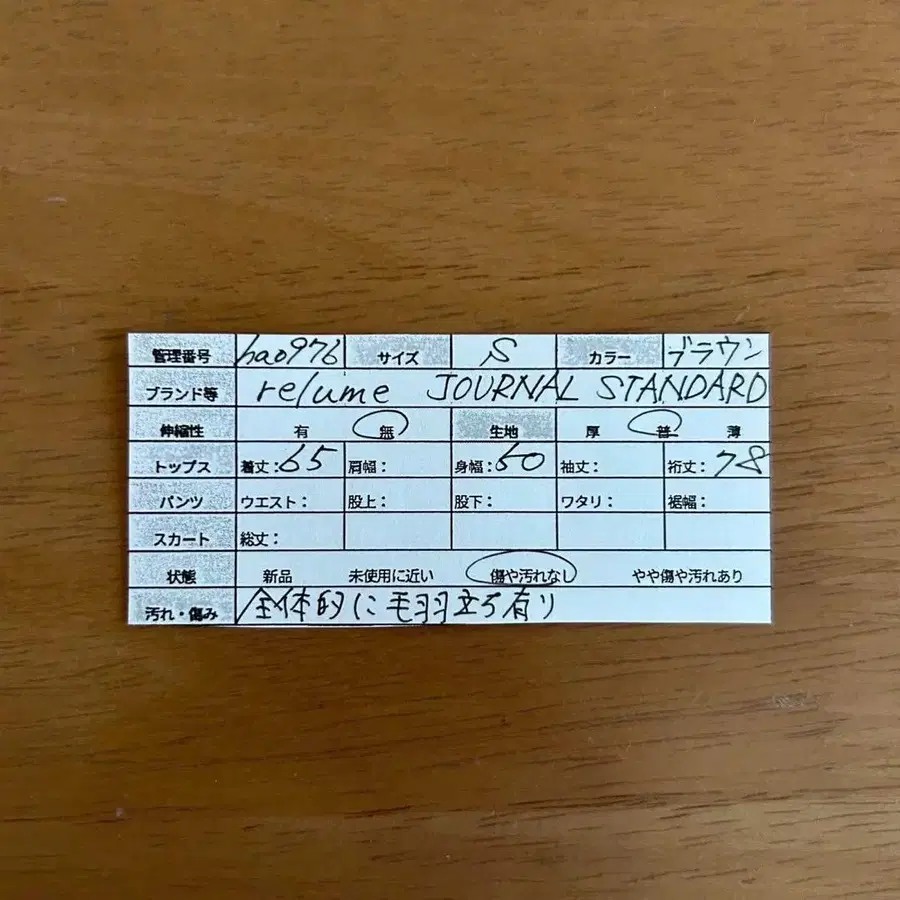 管理番号 hao976 サイズ S カラー ブラウン
ブランド等 relume JOURNAL STANDARD
伸縮性 有 無 生地 厚 普 薄
トップス 着丈:65 肩幅: 身幅:60 袖丈: 裄丈:78
パンツ ウエスト: 股上: 股下: ワタリ: 裾幅:
スカート 総丈:
状態 新品 未使用に近い 傷や汚れなし やや傷や汚れあり
汚れ・傷み 全体的に毛羽立ち有り